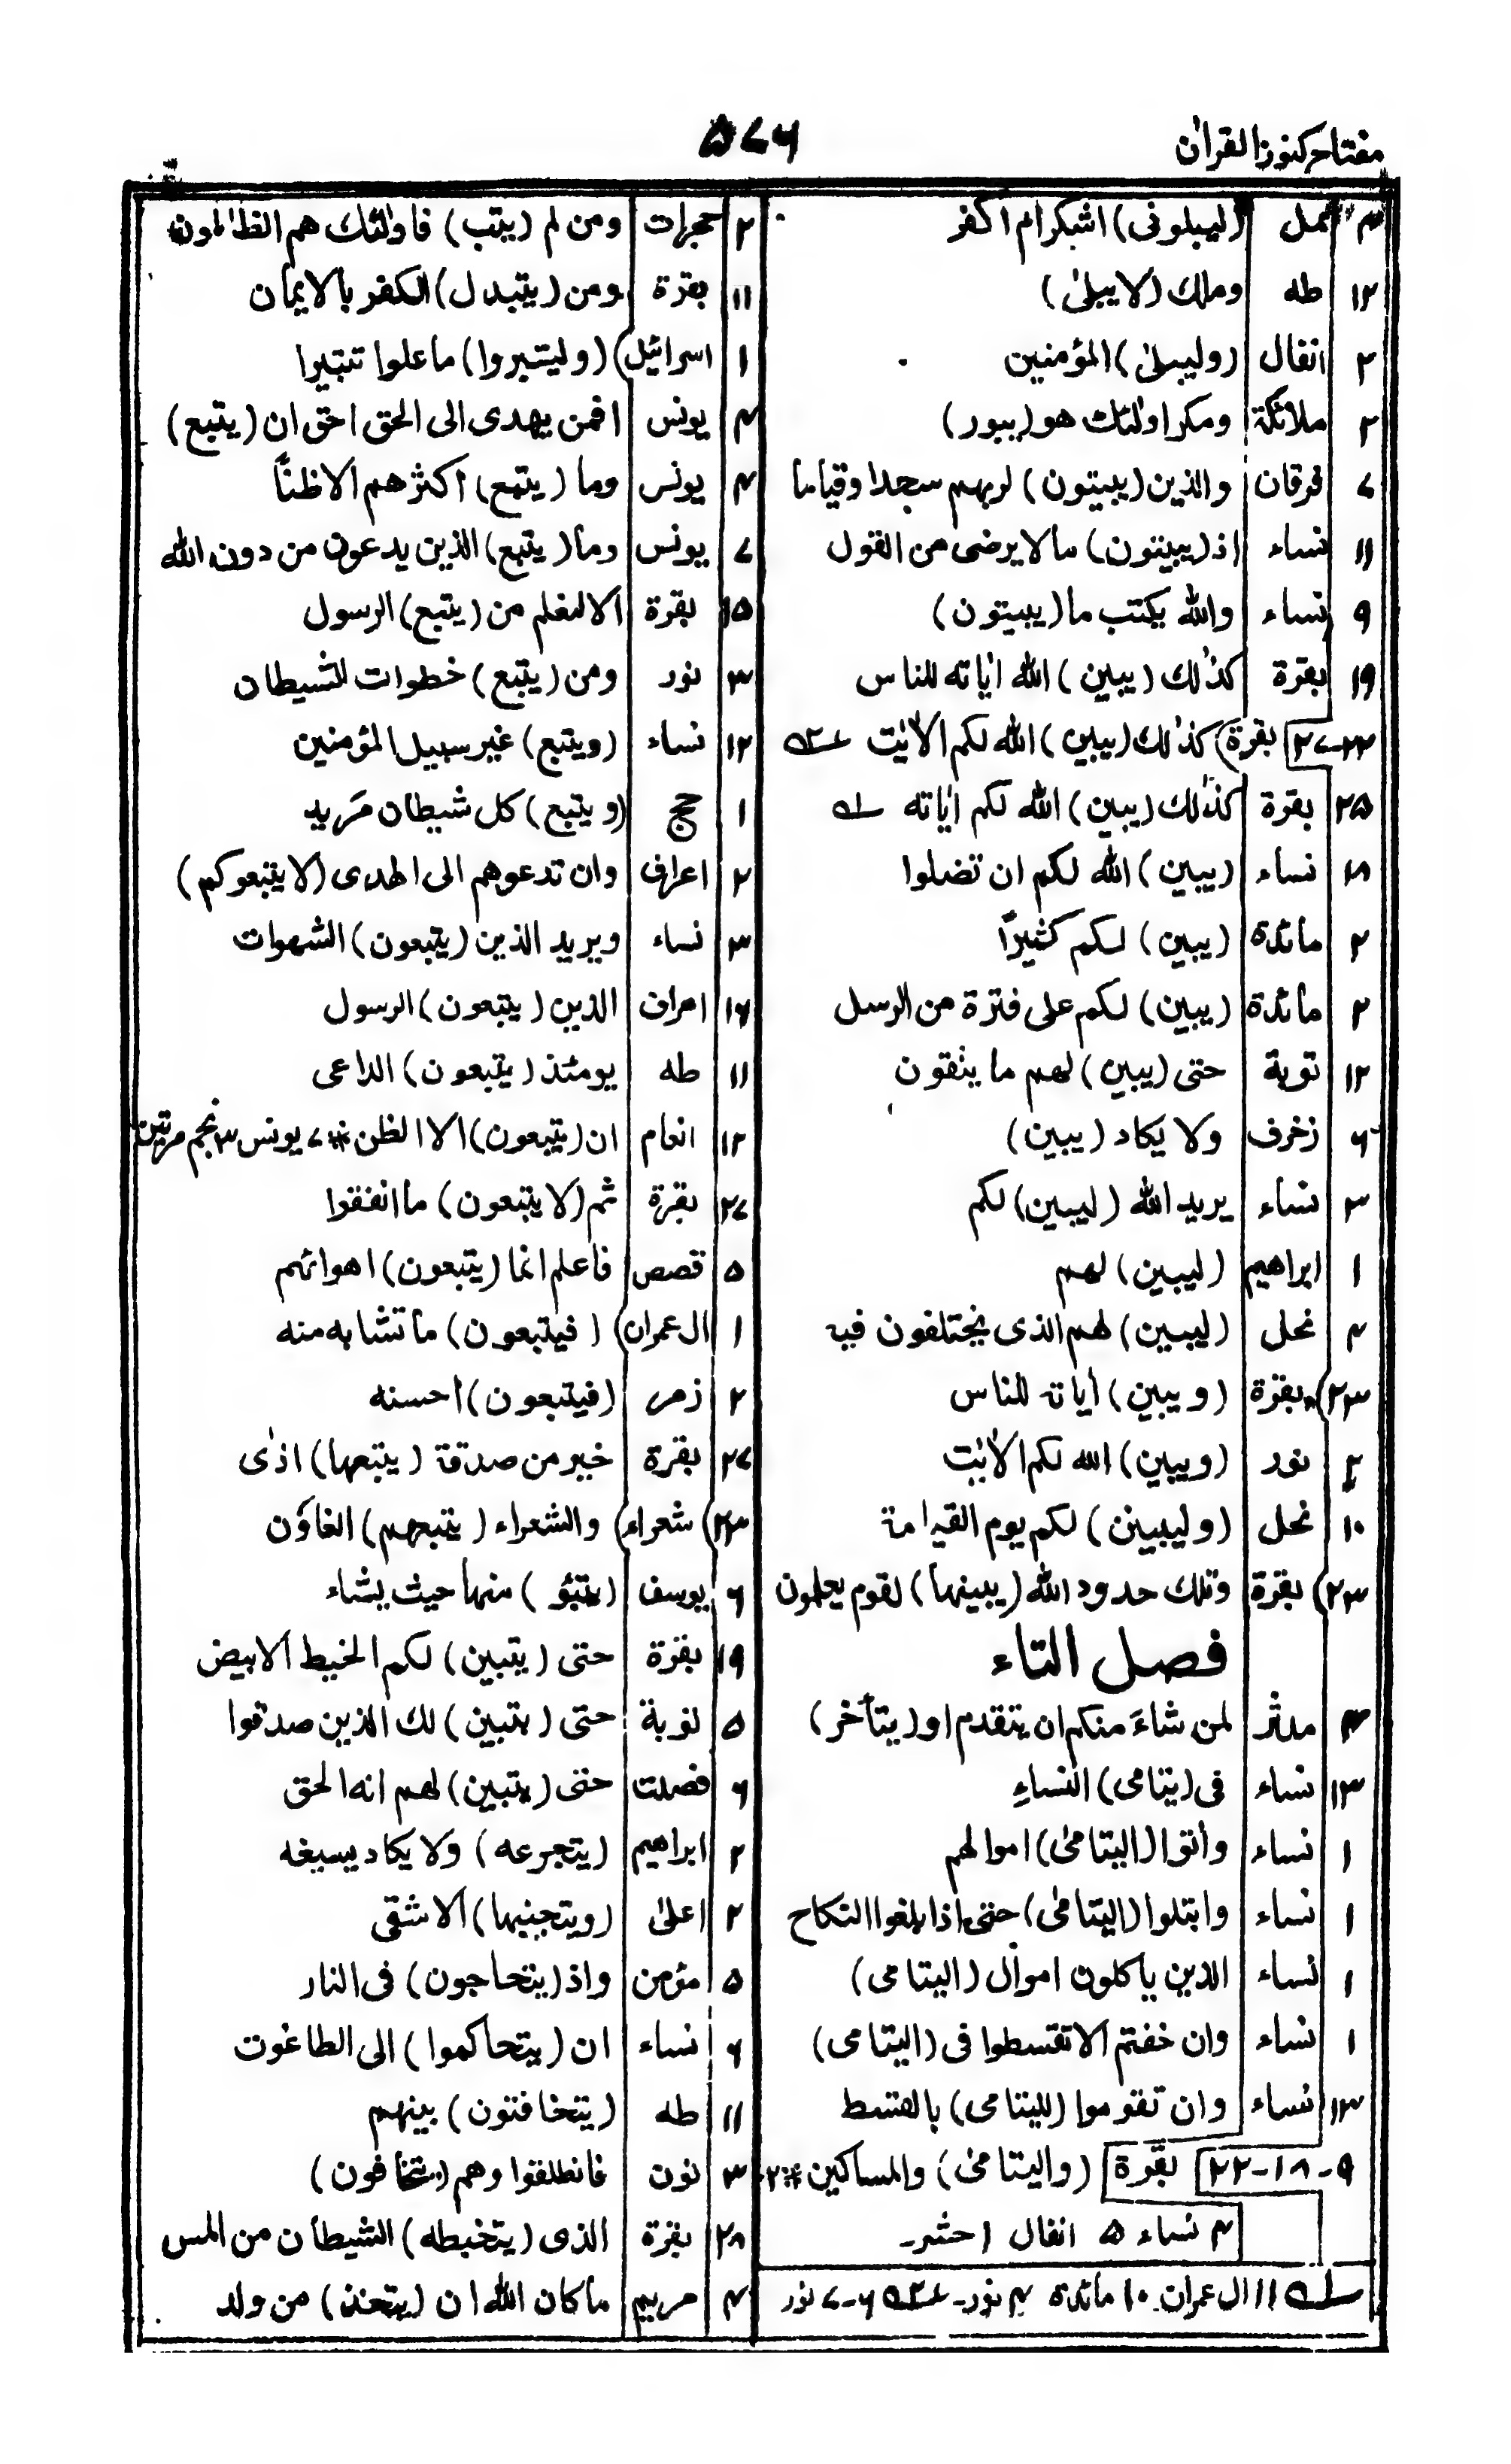 مفتاح کنوز القرآن
۵۷۶
۳ نمل (لیبلونی) اشکر ام اکفر
۱۲ طه وملك (لا یبلیٰ)
۲ انفال (ولیبلی) المؤمنین
۲ ملائکة ومکر اولٰئك هو (یبور)
۷ فرقان والذین (یبیتون) لربهم سجدا وقیاما
۱۱ نساء اذ (یبیتون) مالا یرضی من القول
۹ نساء والله یکتب ما (یبیتون)
۱۹ بقرة کذٰلك (یبین) الله اٰیاته للناس
۲۲-۲۷ بقرة کذٰلك (یبین) الله لکم الاٰیٰت
۲۵ بقرة کذٰلك (یبین) الله لکم اٰیاته
۱۸ نساء (یبین) الله لکم ان تضلوا
۲ مائدة (یبین) لکم کثیرًا
۲ مائدة (یبین) لکم علی فترة من الرسل
۱۲ توبة حتی (یبین) لهم ما یتقون
۶ زخرف ولا یکاد (یبین)
۳ نساء یرید الله (لیبین) لکم
۱ ابراهیم (لیبین) لهم
۴ نحل (لیبین) لهم الذی یختلفون فیه
۲۳ بقرة (ویبین) اٰیاته للناس
۲ نور (ویبین) الله لکم الاٰیٰت
۱۰ نحل (ولیبینن) لکم یوم القیامة
۲۳ بقرة وتلك حدود الله (یبینها) لقوم یعلمون
فصل التاء
مدثر لمن شاءَ منکم ان یتقدم او (یتأخر)
۱۳ نساء فی (یتامی) النساءِ
۱ نساء واٰتوا (الیتامیٰ) اموالهم
۱ نساء وابتلوا (الیتامیٰ) حتی اذا بلغوا النکاح
۱ نساء الذین یاکلون اموال (الیتامی)
۱ نساء وان خفتم الا تقسطوا فی (الیتامی)
۱۳ نساء وان تقوموا (للیتامی) بالقسط
۹-۱۸-۲۲ بقرة (والیتامیٰ) والمساکین
۴ نساء ۵ انفال ۱ حشر
۱۱ ال عمران ۱۰ مائدة ۴ نور ۶-۷ نور
۲ حجرات ومن لم (یتب) فاولٰئك هم الظٰلمون
۱۱ بقرة ومن (یتبدل) الکفر بالایمان
۱ اسرائیل (ولیتبروا) ما علوا تتبیرا
۴ یونس افمن یهدی الی الحق احق ان (یتبع)
۴ یونس وما (یتبع) اکثرهم الا ظنًّا
۷ یونس وما (یتبع) الذین یدعون من دون الله
۱۵ بقرة الا لنعلم من (یتبع) الرسول
۳ نور ومن (یتبع) خطوات الشیطان
۱۲ نساء (ویتبع) غیر سبیل المؤمنین
۱ حج (ویتبع) کل شیطان مَرید
۲ اعراف وان تدعوهم الی الهدی (لا یتبعوکم)
۳ نساء ویرید الذین (یتبعون) الشهوات
۱۶ اعراف الذین (یتبعون) الرسول
۱۱ طه یومئذ (یتبعون) الداعی
۱۲ انعام ان (یتبعون) الا الظن ۷ یونس ۳ نجم مرتین
۲۷ بقرة ثم (لا یتبعون) ما انفقوا
۵ قصص فاعلم انما (یتبعون) اهوائهم
۱ ال عمران (فیتبعون) ما تشابه منه
۲ زمر (فیتبعون) احسنه
۲۷ بقرة خیر من صدقة (یتبعها) اذی
شعراء والشعراء (یتبعهم) الغاوٗن
۶ یوسف (یتبؤ) منها حیث یشاء
۱۹ بقرة حتی (یتبین) لکم الخیط الابیض
۵ توبة حتی (یتبین) لك الذین صدقوا
۶ فصلت حتی (یتبین) لهم انه الحق
۲ ابراهیم (یتجرعه) ولا یکاد یسیغه
۲ اعلیٰ (ویتجنبها) الاشقی
۵ مؤمن واذ (یتحاجون) فی النار
۶ نساء ان (یتحاکموا) الی الطاغوت
۱۱ طه (یتخافتون) بینهم
۳ نون فانطلقوا وهم (یتخافتون)
۲۸ بقرة الذی (یتخبطه) الشیطان من المس
۴ مریم ما کان الله ان (یتخذ) من ولد